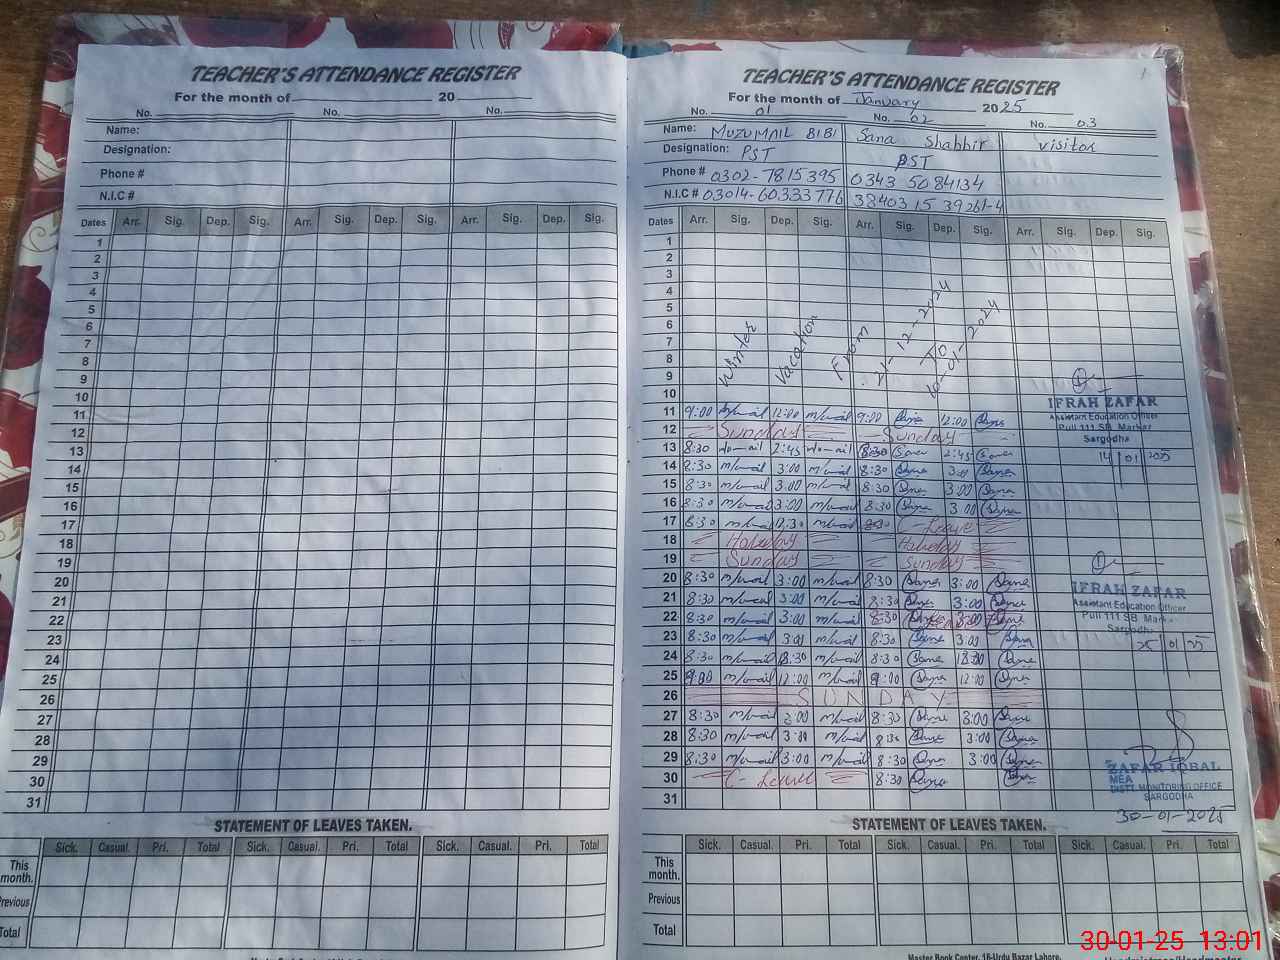 TEACHER'S ATTENDANCE REGISTER
For the month of 20
No. No. No.
Name:
Designation:
Phone #
N.I.C #
Dates Arr. Sig. Dep. Sig. Arr. Sig. Dep. Sig. Arr. Sig. Dep. Sig.
1
2
3
4
5
6
7
8
9
10
11
12
13
14
15
16
17
18
19
20
21
22
23
24
25
26
27
28
29
30
31
STATEMENT OF LEAVES TAKEN.
Sick. Casual. Pri. Total Sick. Casual. Pri. Total Sick. Casual. Pri. Total
This month.
Previous
Total
TEACHER'S ATTENDANCE REGISTER
For the month of January 2025
No. 01 No. 02 No. 03
Name: MUZUMAIL BIBI Sana Shabbir visitor
Designation: PST PST
Phone # 0302-7815395 0343 5084134
N.I.C # 03014-60333776 38403 15 39261-4
Dates Arr. Sig. Dep. Sig. Arr. Sig. Dep. Sig. Arr. Sig. Dep. Sig.
1
2
3
4
5
6
7
8
9
10
Winter Vacation From 21-12-2024 TO -01-2024
11 9:00 12:00 9:00 12:00
12 Sunday Sunday
13 8:30 2:45 8:30 2:45
14 8:30 3:00 8:30 3:00
15 8:30 3:00 8:30 3:00
16 8:30 3:00 8:30 3:00
17 8:30 12:30 8:30 C-Leave
18 Holiday Holiday
19 Sunday Sunday
20 8:30 3:00 8:30 3:00
21 8:30 3:00 8:30 3:00
22 8:30 3:00 8:30 3:00
23 8:30 3:00 8:30 3:00
24 8:30 8:30
25 9:00 12:00 9:00 12:00
26 SUNDAY
27 8:30 3:00 8:30 3:00
28 8:30 3:00 8:30 3:00
29 8:30 3:00 8:30 3:00
30 C-Leave 8:30
31
IFRAH ZAFAR
Assistant Education Officer
Pull 111 SB Markaz
Sargodha
14 01 2025
IFRAH ZAFAR
Assistant Education Officer
Pull 111 SB Markaz
Sargodha
25 01 25
ZAFAR IQBAL
MEA
DISTT MONITORING OFFICE
SARGODHA
30-01-2025
STATEMENT OF LEAVES TAKEN.
Sick. Casual. Pri. Total Sick. Casual. Pri. Total Sick. Casual. Pri. Total
This month.
Previous
Total
Master Book Center, 16-Urdu Bazar Lahore.
Headmistress/Headmaster
30-01-25 13:01